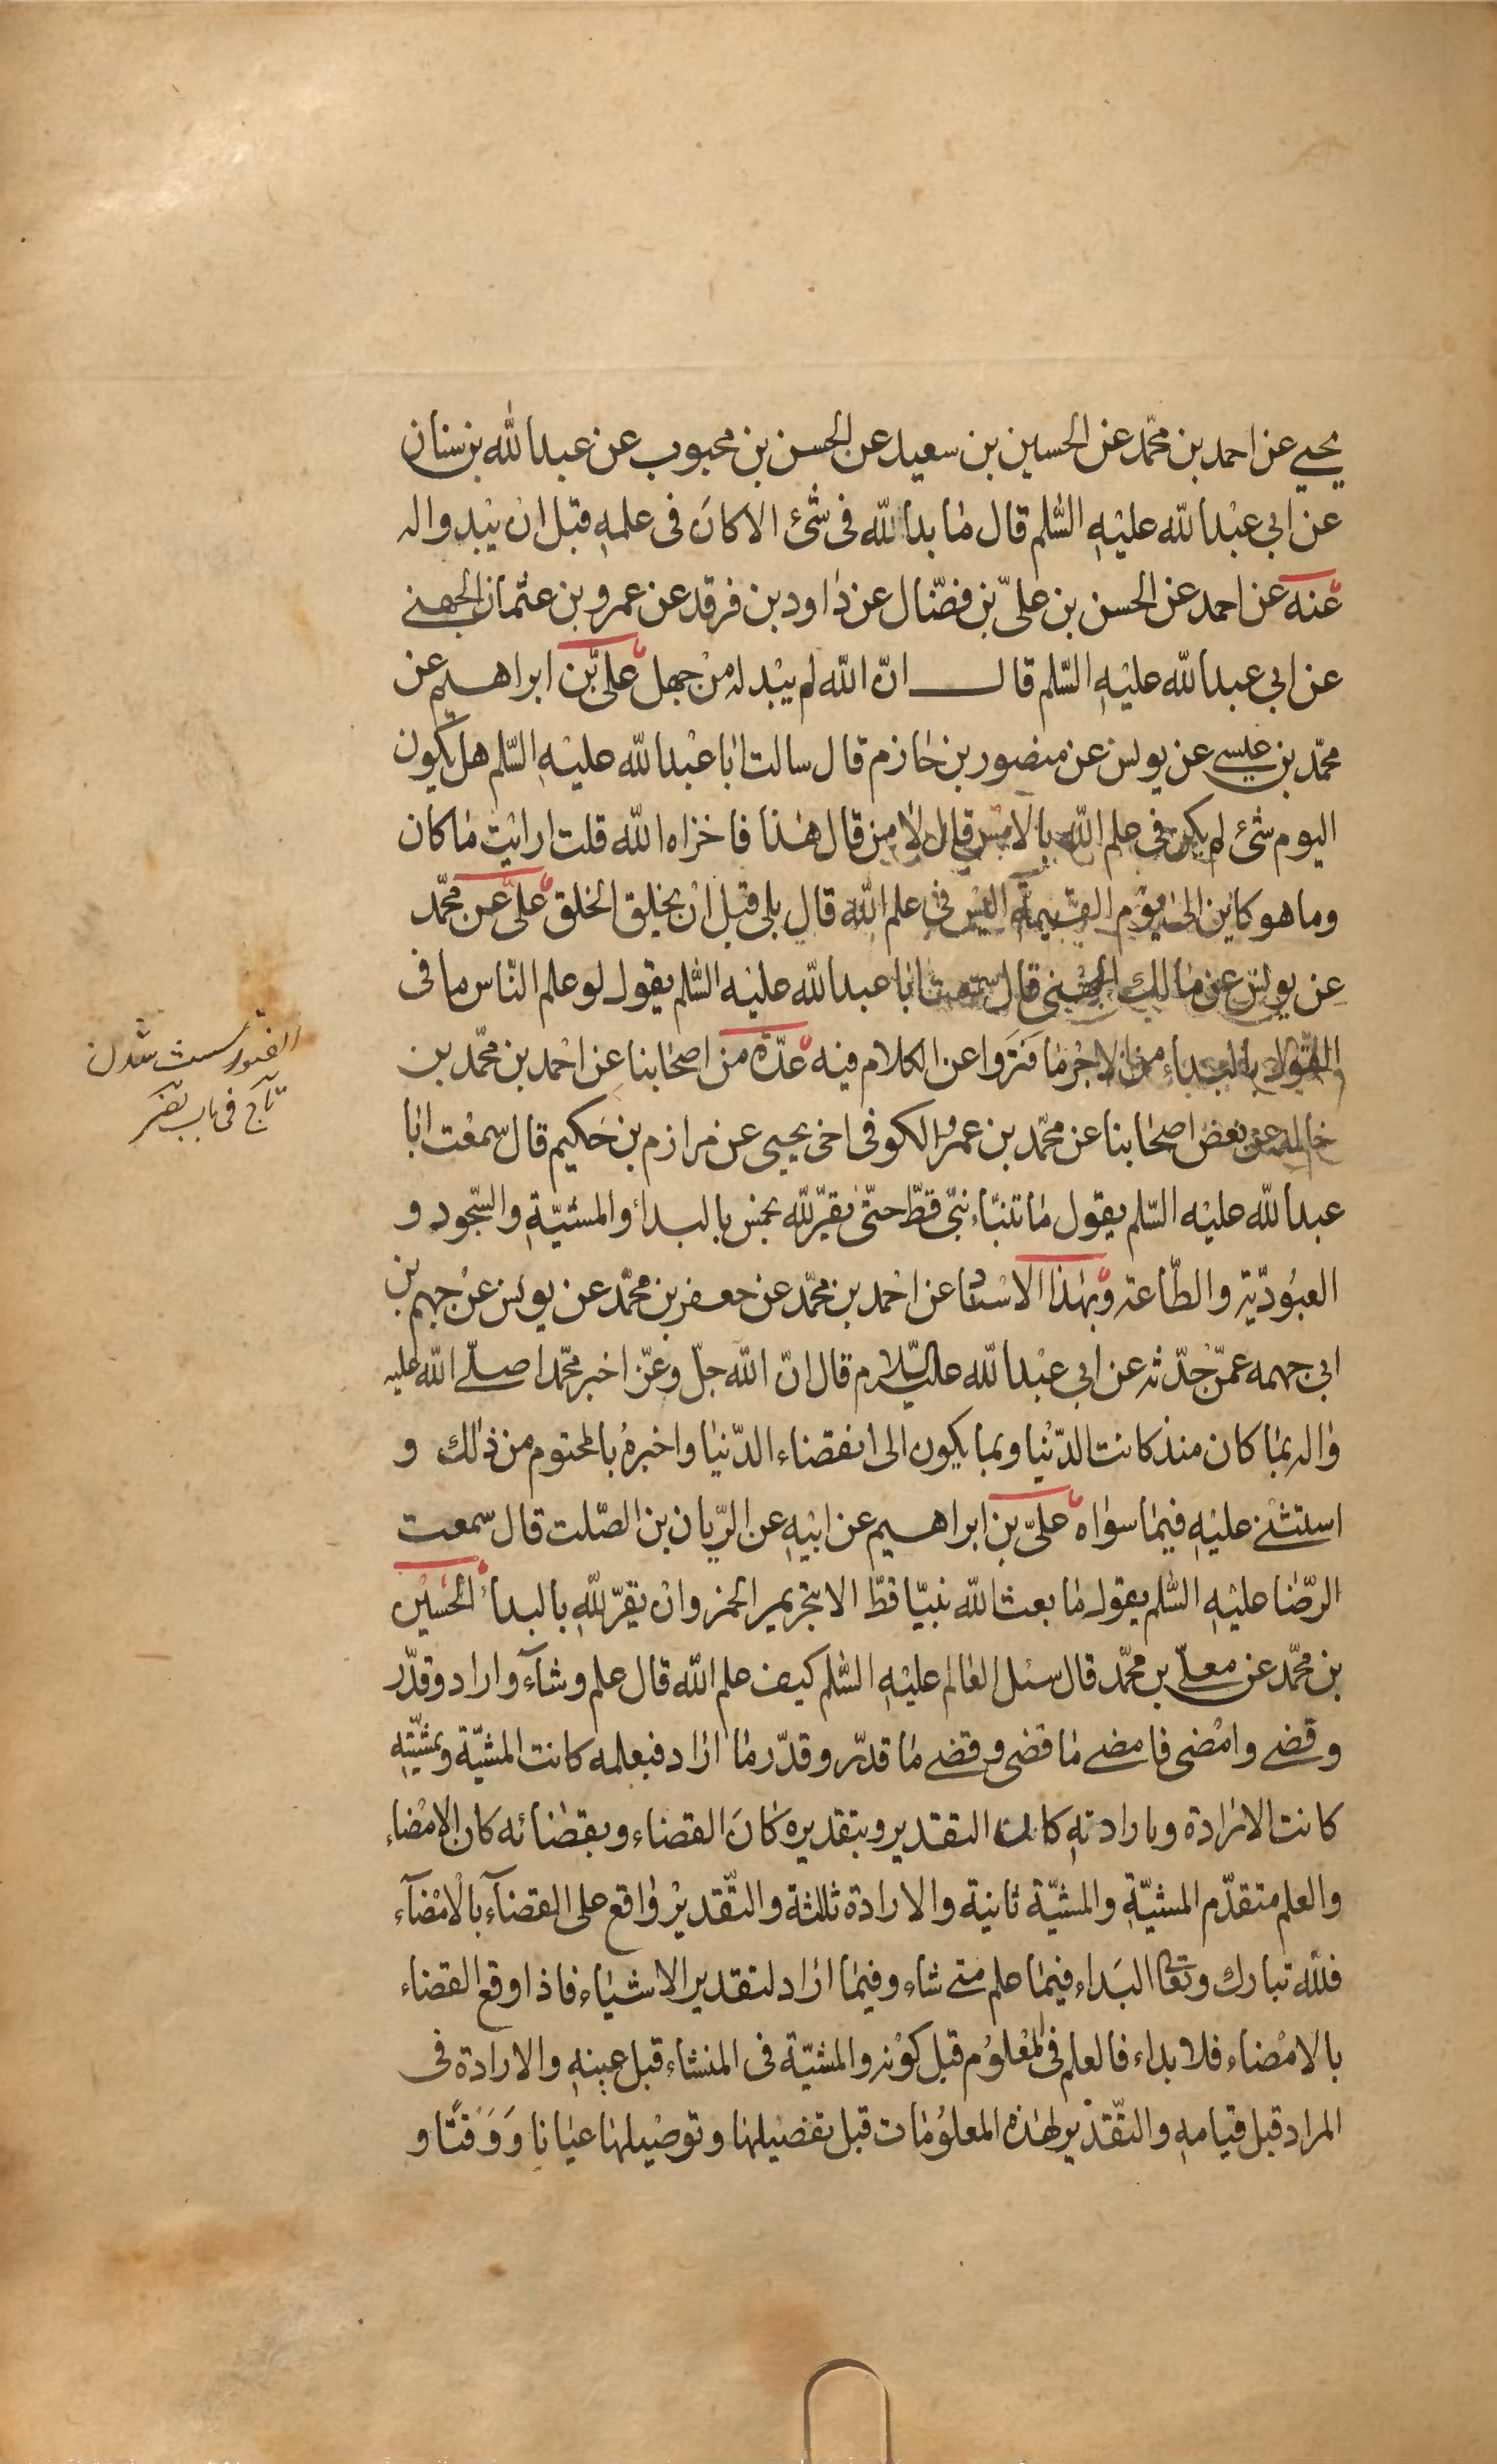 يحيى عن احمد بن محمّد عن الحسين بن سعيد عن الحسن بن محبوب عن عبد الله بن سنان
عن ابي عبْد الله عليْهِ السّلم قال ما بدا لله فى شئ الا كانَ فى علمهِ قبل انْ يبْدو اله
عنه عن احمد عن الحسن بن علىّ بن فضّال عن داود بن فرقد عن عمرو بن عثمان الجهنى
عن ابي عبد الله عليْهِ السّلم قال انّ الله لم يبْد له منْ جهل علىّ بن ابراهيم عن
محمّد بن عيسى عن يونس عن منصور بن حازم قال سالت ابا عبْد الله عليْهِ السّلم هل يكون
اليوم شئ لم يكن فى علم الله بالامْس قال لا من قال هذا فاخزاه الله قلت ارايْت ما كان
وما هو كاين الى يوْم القيمة اليْس فى علم الله قال بلى قبْل انْ يخلق الخلق علىّ عن محمّد
عن يونس عن مالك الجهنى قال سمعت ابا عبد الله عليْه السّلم يقول لو علم النّاس ما فى
القول بالبداء من الاجْر ما فترَوا عن الكلام فيه عدّة من اصحابنا عن احْمد بن محمّد بن
خالد عن بعض اصحابنا عن محمّد بن عمرو الكوفى اخى يحيى عن مرازم بن حَكيم قال سمعْت ابا
عبد الله عليْه السّلم يقول ما تنبّاء نبىّ قطّ حتّى يقرّ لله بخمس بالبداء والمشيّةِ والسّجود و
العبُوديّة والطّاعة وبهذا الاسْناد عن احْمد بن محمّد عن جعفر بن محمّد عن يونس عنْ جهم بن
ابى جهمه عمّن حْدّثه عن ابي عبْد الله عليه السّلام قال انّ الله جلّ وعزّ اخبر محمّدا صلّى الله عليه
واله بما كان منذ كانت الدّنْيا وبما يكون الى انقضاء الدّنيا واخبرهُ بالمحتوم من ذلك و
استثنى عليْهِ فيما سواه علىّ بن ابراهيم عن ابيْهِ عن الرّيان بن الصّلت قال سمعت
الرّضا عليْهِ السّلم يقول ما بعث الله نبيّا قطّ الا بتحْريم الخمر وانْ يقرّ للّهِ بالبداء الحُسيْن
بن محمّد عن معلّى بن محمّد قال سئل العالم عليْهِ السّلم كيف علم الله قال علم وشآء واراد وقدّر
وقضى وامْضى فامضى ما قضى وقضى ما قدّر وقدّر ما اراد فبعلمه كانت المشيّة وبمشيّتهِ
كانت الارادة وبارادتهِ كان التقدير وبتقديره كانَ القضاء وبقضائه كان الامْضاء
والعلم متقدّم المشيّةِ والمشيّة ثانية والارادة ثالثة والتّقديْر واقع على القضآء بالْامْضآء
فللّه تبارك وتعالى البَداء فيما علم متى شاء وفيما اراد لتقدير الاشياء فاذا وقع القضاء
بالامْضاء فلا بداء فالعلم فى المعْلوُم قبل كوْنه والمشيّة فى المنشاء قبل عينهِ والارادة فى
المراد قبل قيامهِ والتّقدْير لهذه المعلوُمات قبل تفصيْلها وتوصيْلها عيانا وَوَقْتًا و
الفتور سست شدن
تاج فى باب نصر